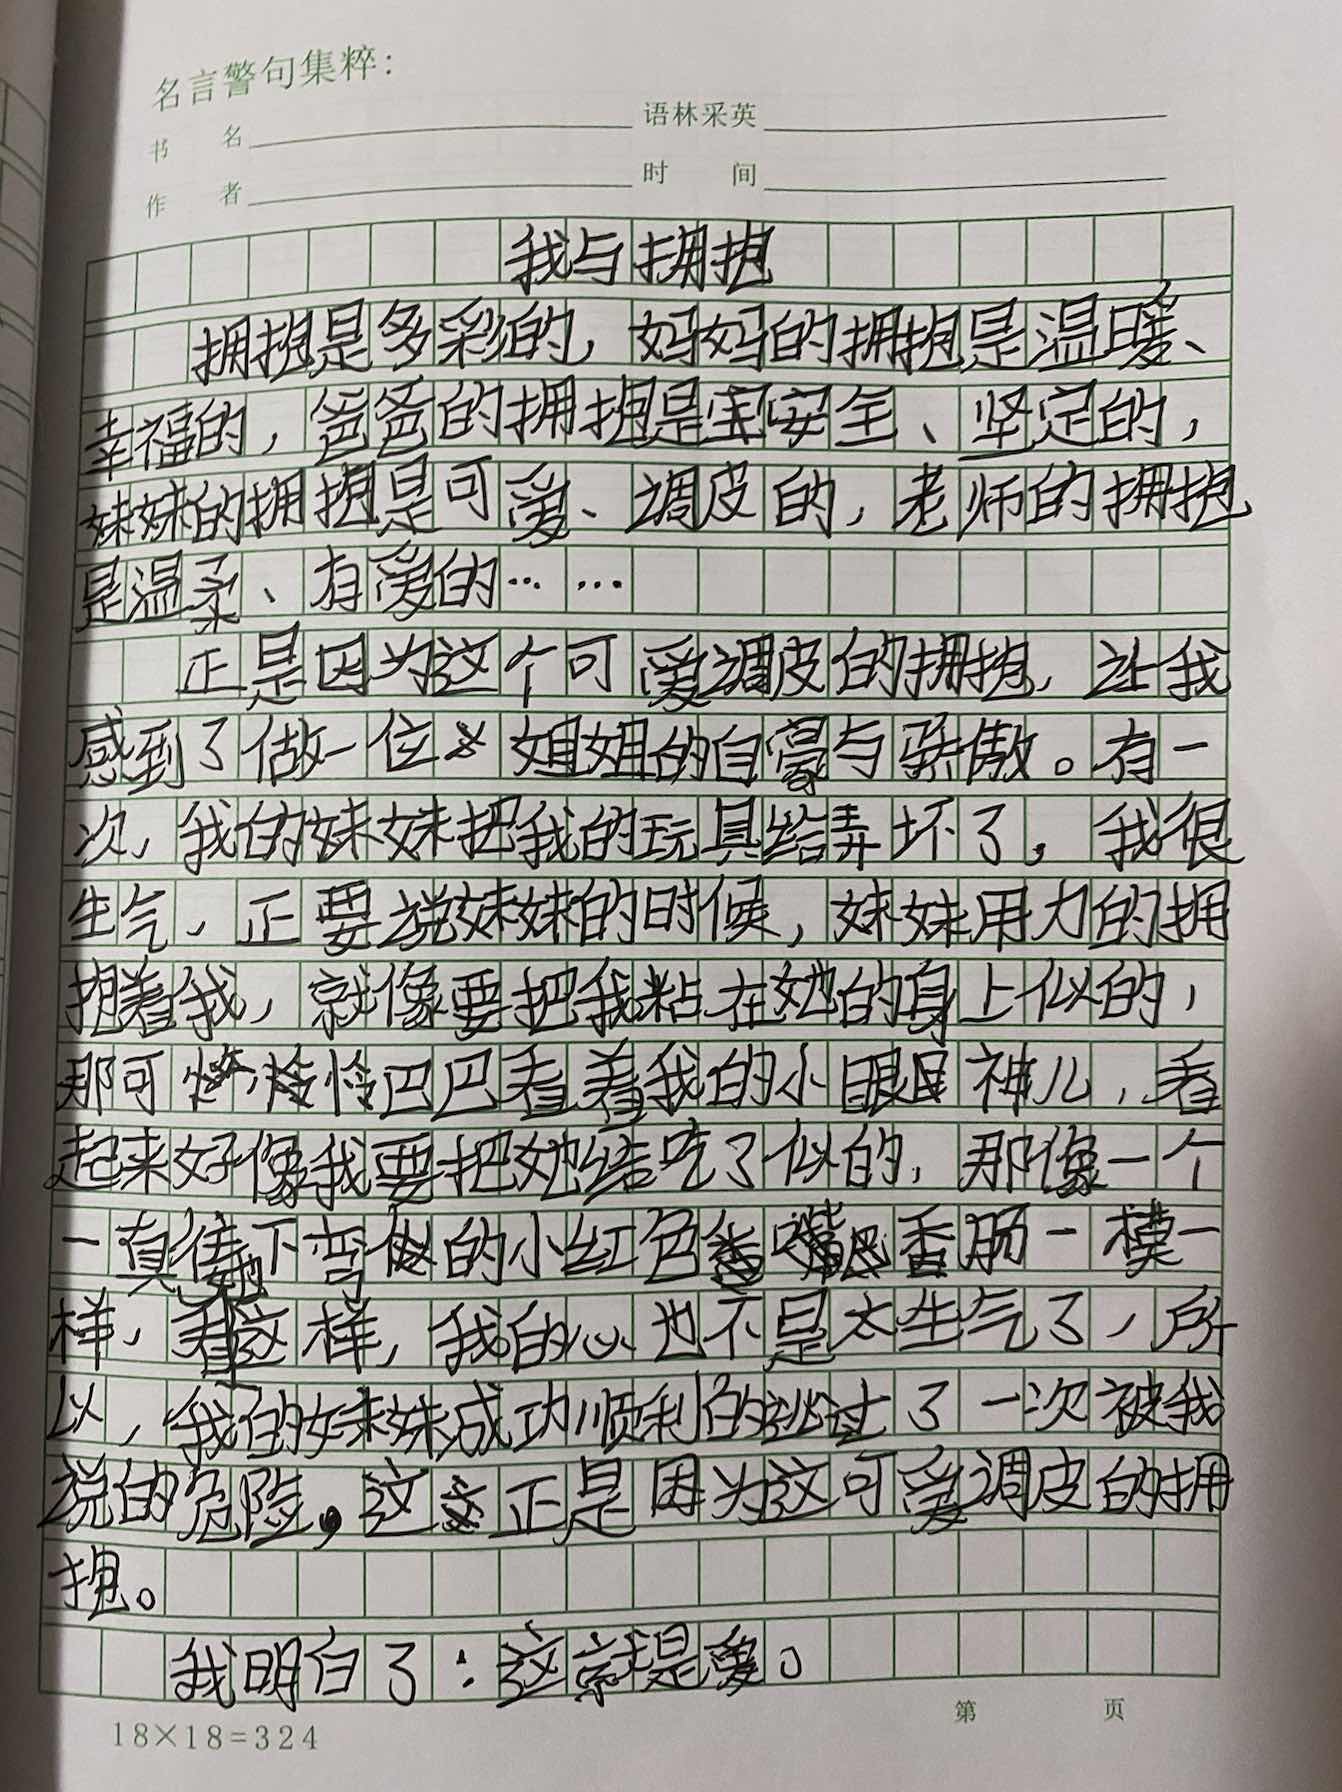 名言警句集粹：
书 名 语林采英
作 者 时 间
我与拥抱
拥抱是多彩的，妈妈的拥抱是温暖、
幸福的，爸爸的拥抱是安全、坚定的，
妹妹的拥抱是可爱、调皮的，老师的拥抱
是温柔、有爱的……
正是因为这个可爱调皮的拥抱，让我
感到了做一位姐姐的自豪与骄傲。有一
次，我的妹妹把我的玩具给弄坏了，我很
生气，正要说妹妹的时候，妹妹用力的拥
抱着我，就像要把我粘在她的身上似的，
那可怜巴巴看着我的小眼神儿，看
起来好像我要把她给吃了似的，那像一个
一直往下弯似的小红色香肠一模一
样，看这样，我的心也不是太生气了，所
以，我的妹妹成功顺利的逃过了一次被我
说的危险，这正是因为这可爱调皮的拥
抱。
我明白了：这就是爱。
第 页
18×18=324